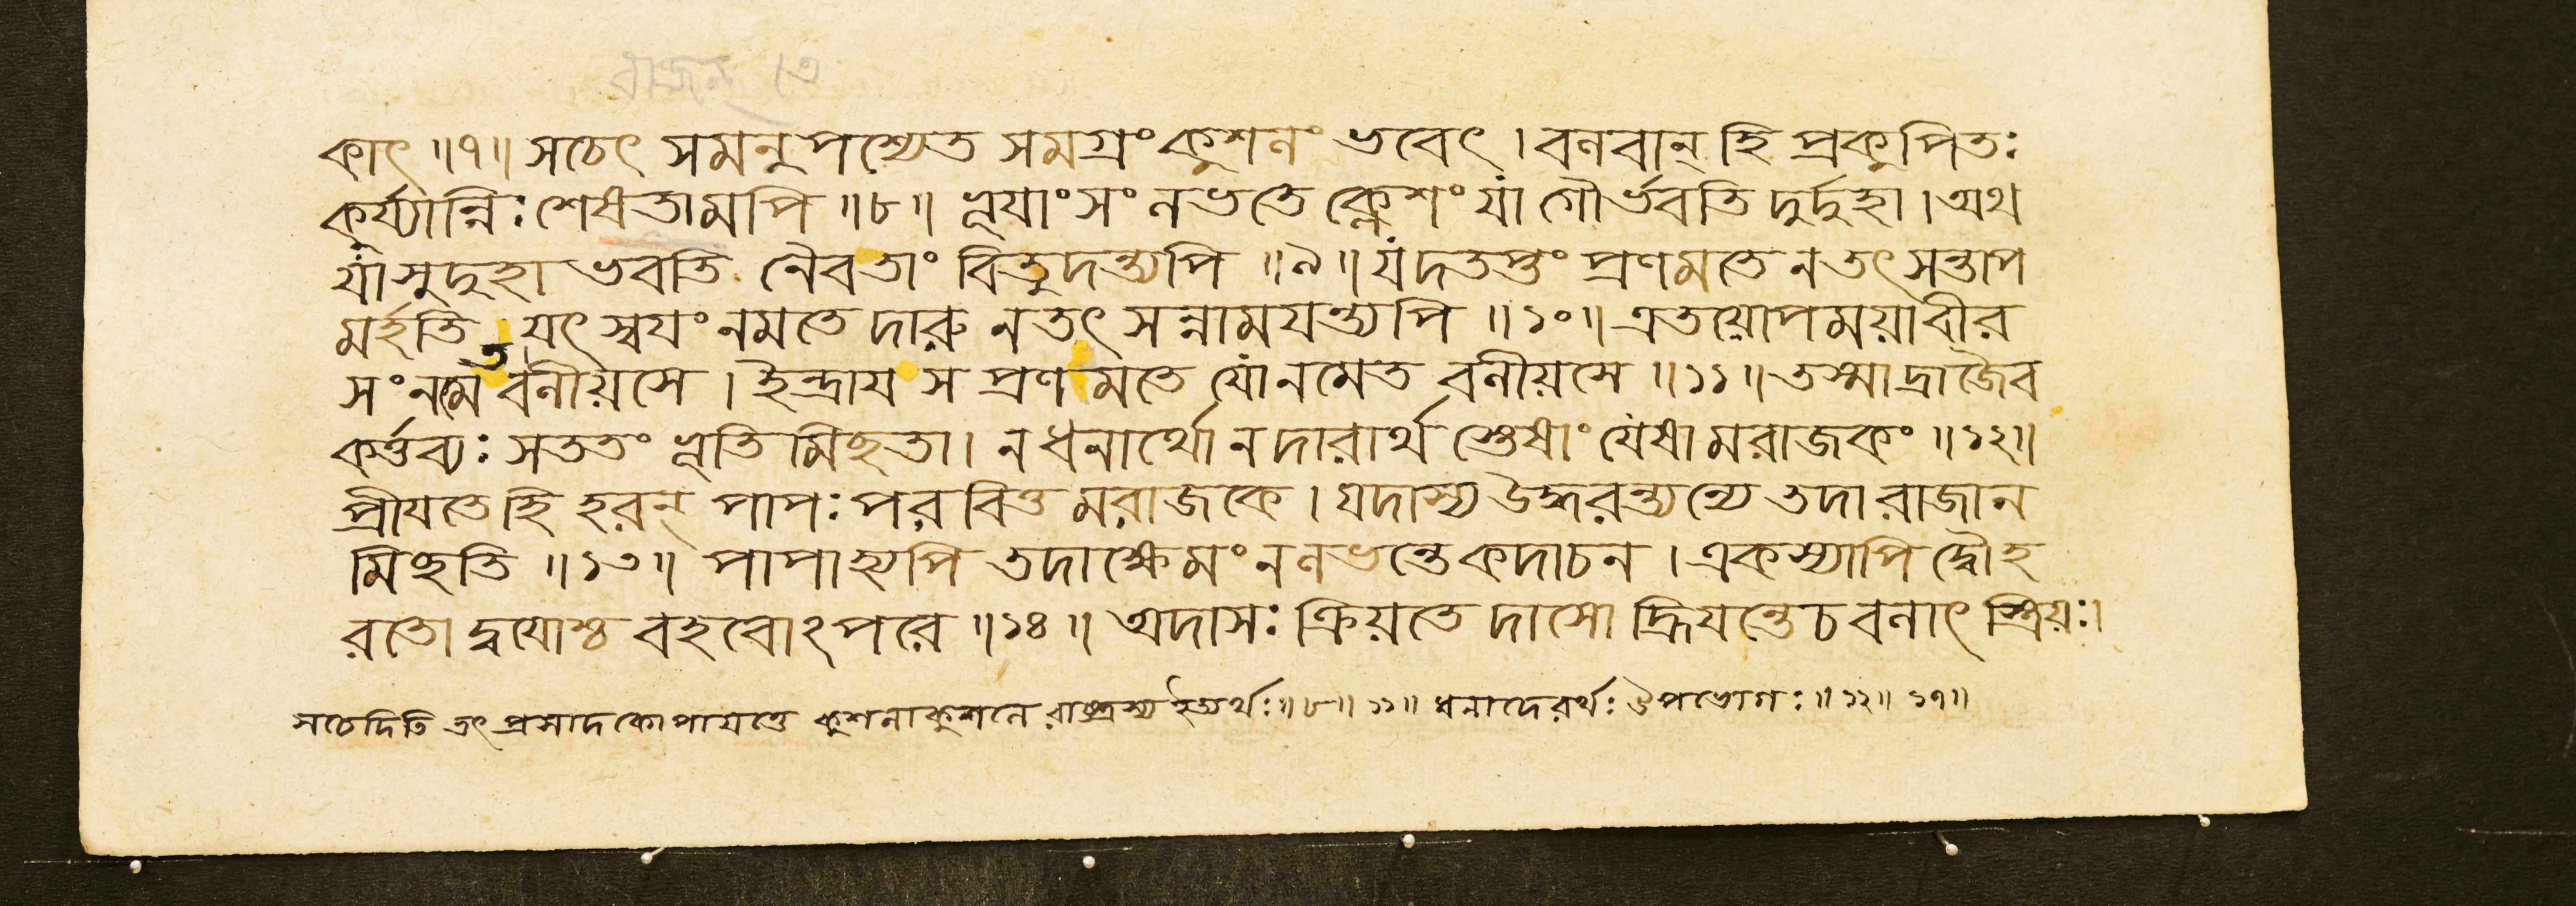 রাজন্ তে
কাৎ ॥৭॥ সচেৎ সমনুপশ্যেত সমগ্রং কুশলং ভবেৎ । বলবান্ হি প্রকুপিতঃ
কুর্য্যান্নিঃশেষতামপি ॥৮॥ ভূযাংসং লভতে ক্লেশং যা গৌর্ভবতি দুর্দুহা । অথ
যা সুদুহা ভবতি নৈবতাং বিতুদন্ত্যপি ॥৯॥ যদতপ্তং প্রণমতে নতৎ সন্তাপ
মর্হতি । যৎ স্বযং নমতে দারু নতৎ সন্নামযন্ত্যপি ॥১০॥ এতয়োপময়াবীর
সংনমেত বলীয়সে । ইন্দ্রায স প্রণমতে যোনমেত বলীয়সে ॥১১॥ তস্মাদ্রাজৈব
কর্ত্তব্যঃ সততং ভূতি মিছতা । ন ধনার্থো ন দারার্থ স্তেষাং যেষামরাজকং ॥১২॥
প্রীযতেহি হরন্ পাপঃ পরবিত্তমরাজকে । যদাস্য উদ্ধরন্ত্যন্যে তদা রাজান
মিছতি ॥১৩॥ পাপাহ্যপি তদাক্ষেমং নলভন্তে কদাচন । একস্যাপি দ্বৌহ
রতো দ্বযোশ্চ বহবোঽপরে ॥১৪॥ অদাসঃ ক্রিয়তে দাসো হ্রিযন্তেচ বলাৎ স্ত্রিয়ঃ।
সচেদিতি তৎ প্রসাদকোপাযত্তে কুশলাকুশলে রাষ্ট্রস্য ইত্যর্থঃ ॥৮॥ ১১॥ ধনাদেরর্থঃ উপভোগঃ ॥১২॥ ১৭॥